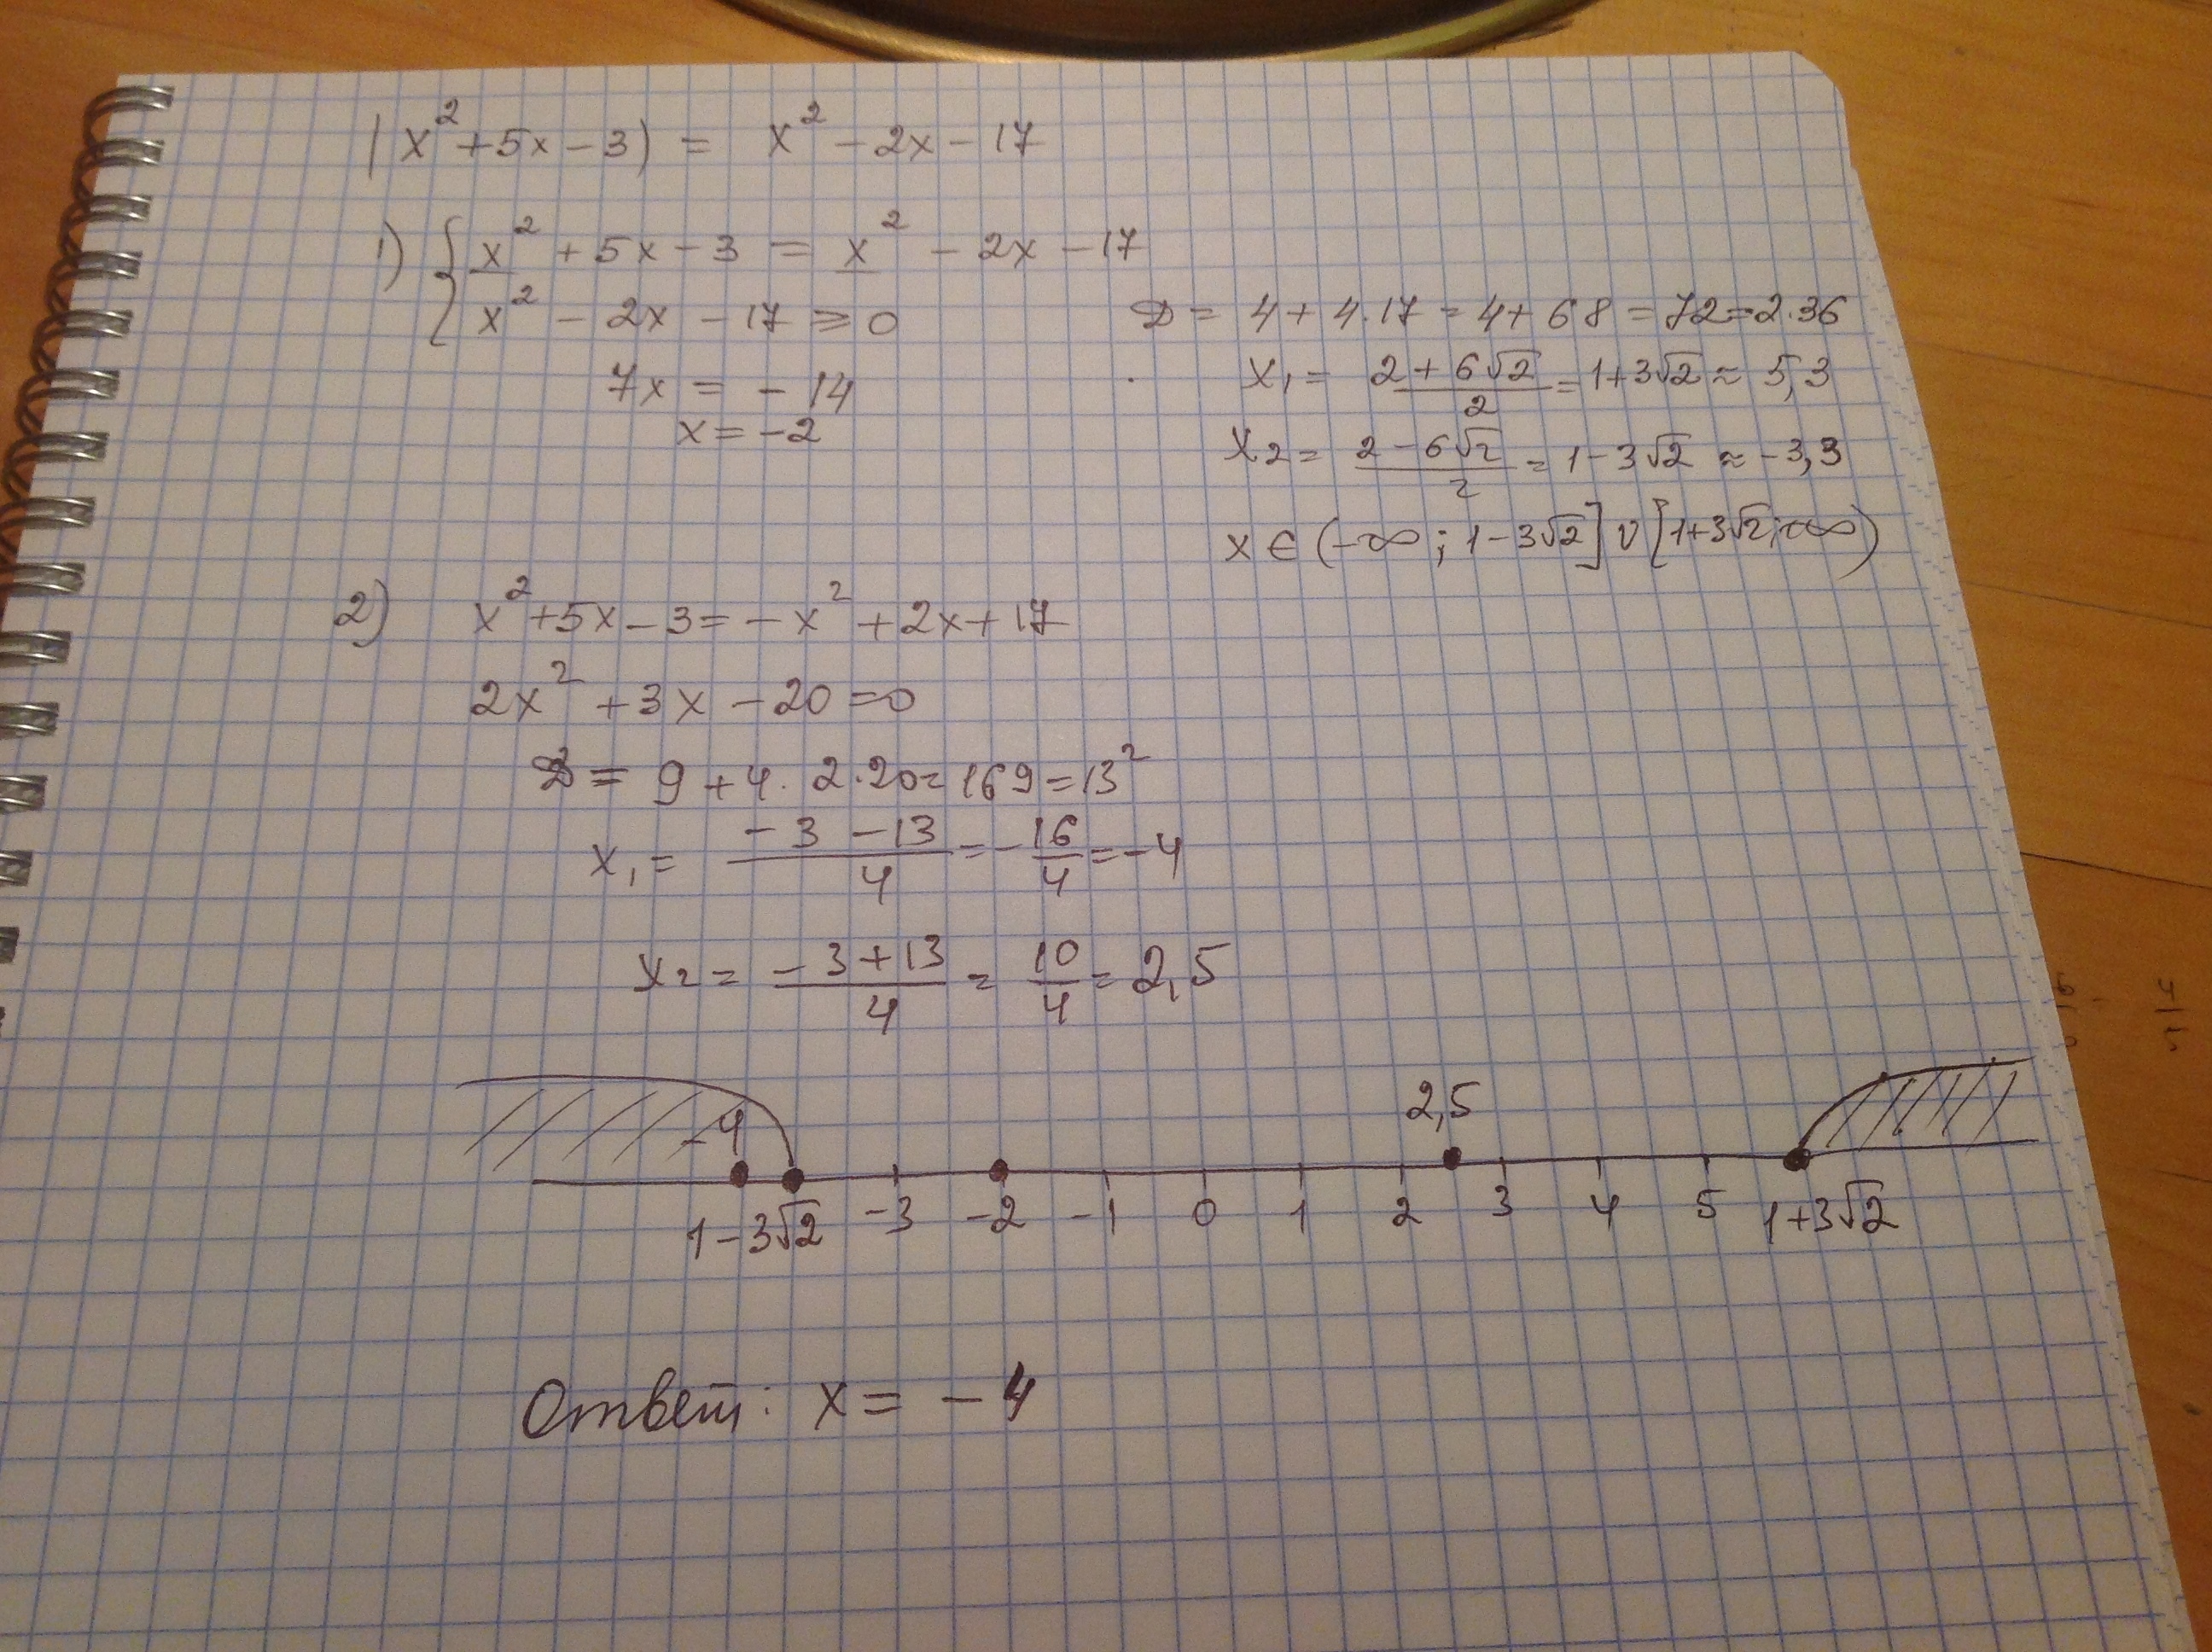 |x²+5x-3) = x²-2x-17
1) { x²+5x-3 = x²-2x-17
x²-2x-17 ⩾ 0
7x = -14
x = -2
D = 4+4·17 = 4+68 = 72 = 2·36
x₁ = (2+6√2)/2 = 1+3√2 ≈ 5,3
x₂ = (2-6√2)/2 = 1-3√2 ≈ -3,3
x ∈ (-∞; 1-3√2] ∪ [1+3√2; +∞)
2) x²+5x-3 = -x²+2x+17
2x²+3x-20=0
D = 9+4·2·20 = 169 = 13²
x₁ = (-3-13)/4 = -16/4 = -4
x₂ = (-3+13)/4 = 10/4 = 2,5
-4 2,5
1-3√2 -3 -2 -1 0 1 2 3 4 5 1+3√2
Ответ: x = -4